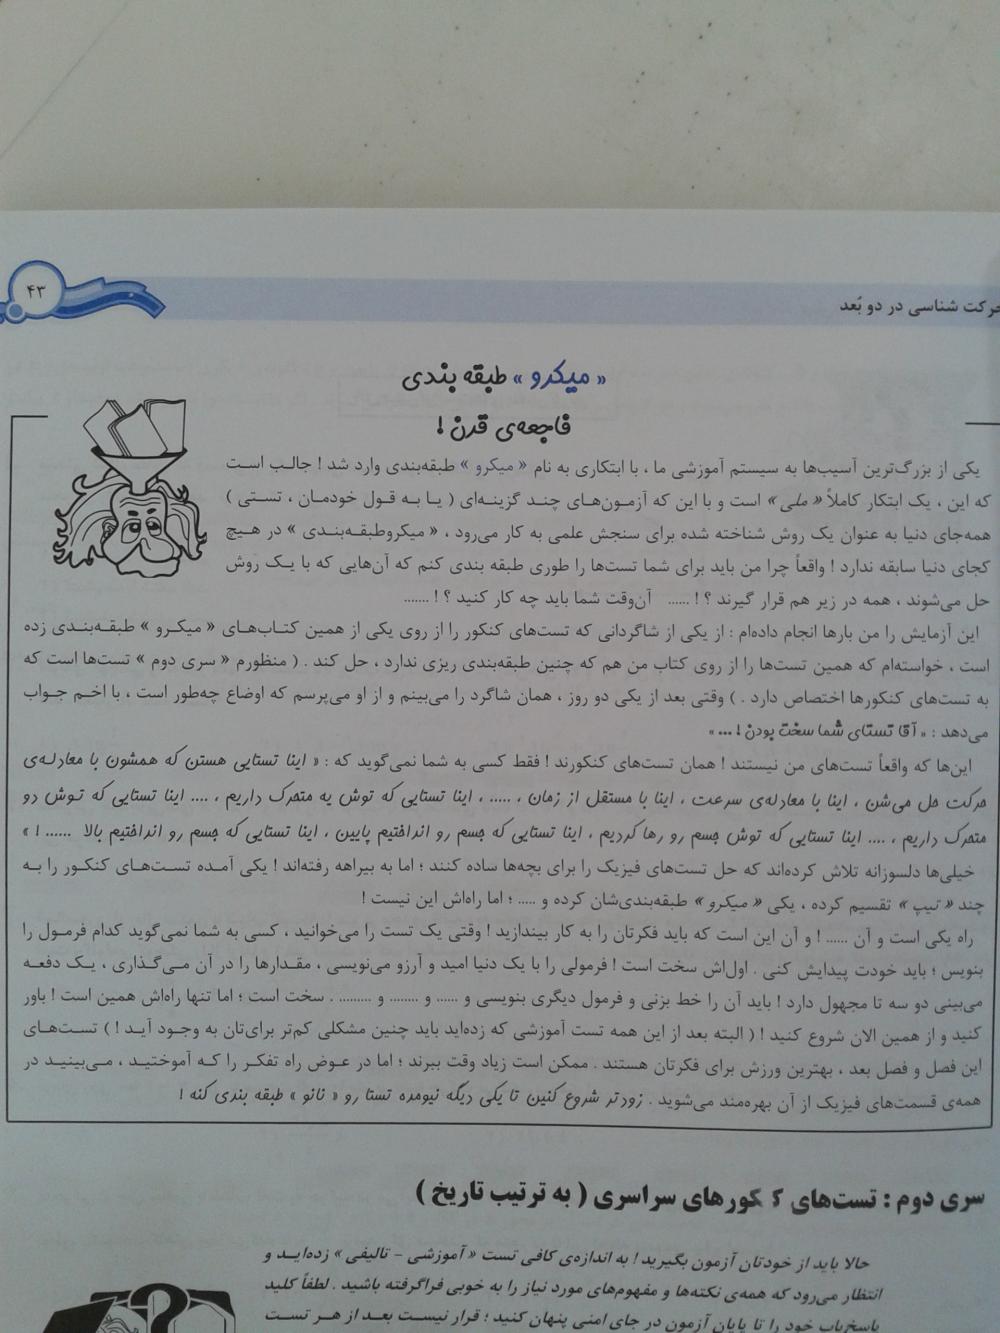 ۴۳
حرکت شناسی در دو بُعد
« میکرو » طبقه بندی
فاجعه‌ی قرن !
یکی از بزرگ‌ترین آسیب‌ها به سیستم آموزشی ما ، با ابتکاری به نام « میکرو » طبقه‌بندی وارد شد ! جالب است
که این ، یک ابتکار کاملاً « ملی » است و با این که آزمون‌های چند گزینه‌ای ( یا به قول خودمان ، تستی )
همه‌جای دنیا به عنوان یک روش شناخته شده برای سنجش علمی به کار می‌رود ، « میکروطبقه‌بندی » در هیچ
کجای دنیا سابقه ندارد ! واقعاً چرا من باید برای شما تست‌ها را طوری طبقه بندی کنم که آن‌هایی که با یک روش
حل می‌شوند ، همه در زیر هم قرار گیرند ؟ ! ...... آن‌وقت شما باید چه کار کنید ؟ ! .......
این آزمایش را من بارها انجام داده‌ام : از یکی از شاگردانی که تست‌های کنکور را از روی یکی از همین کتاب‌های « میکرو » طبقه‌بندی زده
است ، خواسته‌ام که همین تست‌ها را از روی کتاب من هم که چنین طبقه‌بندی ریزی ندارد ، حل کند . ( منظورم « سری دوم » تست‌ها است که
به تست‌های کنکورها اختصاص دارد . ) وقتی بعد از یکی دو روز ، همان شاگرد را می‌بینم و از او می‌پرسم که اوضاع چه‌طور است ، با اخم جواب
می‌دهد : « آقا تستای شما سخت بودن ! ... »
این‌ها که واقعاً تست‌های من نیستند ! همان تست‌های کنکورند ! فقط کسی به شما نمی‌گوید که : « اینا تستایی هستن که همشون با معادله‌ی
حرکت حل می‌شن ، اینا با معادله‌ی سرعت ، اینا با مستقل از زمان ، ..... ، اینا تستایی که توش یه متحرک داریم ، .... اینا تستایی که توش دو
متحرک داریم ، .... اینا تستایی که توش جسم رو رها کردیم ، اینا تستایی که جسم رو انداختیم پایین ، اینا تستایی که جسم رو انداختیم بالا ...... ! »
خیلی‌ها دلسوزانه تلاش کرده‌اند که حل تست‌های فیزیک را برای بچه‌ها ساده کنند ؛ اما به بیراهه رفته‌اند ! یکی آمده تست‌های کنکور را به
چند « تیپ » تقسیم کرده ، یکی « میکرو » طبقه‌بندی‌شان کرده و ..... ؛ اما راه‌اش این نیست !
راه یکی است و آن ...... ! و آن این است که باید فکرتان را به کار بیندازید ! وقتی یک تست را می‌خوانید ، کسی به شما نمی‌گوید کدام فرمول را
بنویس ؛ باید خودت پیدایش کنی . اول‌اش سخت است ! فرمولی را با یک دنیا امید و آرزو می‌نویسی ، مقدارها را در آن می‌گذاری ، یک دفعه
می‌بینی دو سه تا مجهول دارد ! باید آن را خط بزنی و فرمول دیگری بنویسی و ...... و ........ و ......... . سخت است ؛ اما تنها راه‌اش همین است ! باور
کنید و از همین الان شروع کنید ! ( البته بعد از این همه تست آموزشی که زده‌اید باید چنین مشکلی کم‌تر برای‌تان به وجود آید ! ) تست‌های
این فصل و فصل بعد ، بهترین ورزش برای فکرتان هستند . ممکن است زیاد وقت ببرند ؛ اما در عوض راه تفکر را که آموختید ، می‌بینید در
همه‌ی قسمت‌های فیزیک از آن بهره‌مند می‌شوید . زودتر شروع کنین تا یکی دیگه نیومده تستا رو « نانو » طبقه بندی کنه !
سری دوم : تست‌های کنکورهای سراسری ( به ترتیب تاریخ )
حالا باید از خودتان آزمون بگیرید ! به اندازه‌ی کافی تست « آموزشی - تالیفی » زده‌اید و
انتظار می‌رود که همه‌ی نکته‌ها و مفهوم‌های مورد نیاز را به خوبی فراگرفته باشید . لطفاً کلید
پاسخ‌یاب خود را تا پایان آزمون در جای امنی پنهان کنید ؛ قرار نیست بعد از هر تست